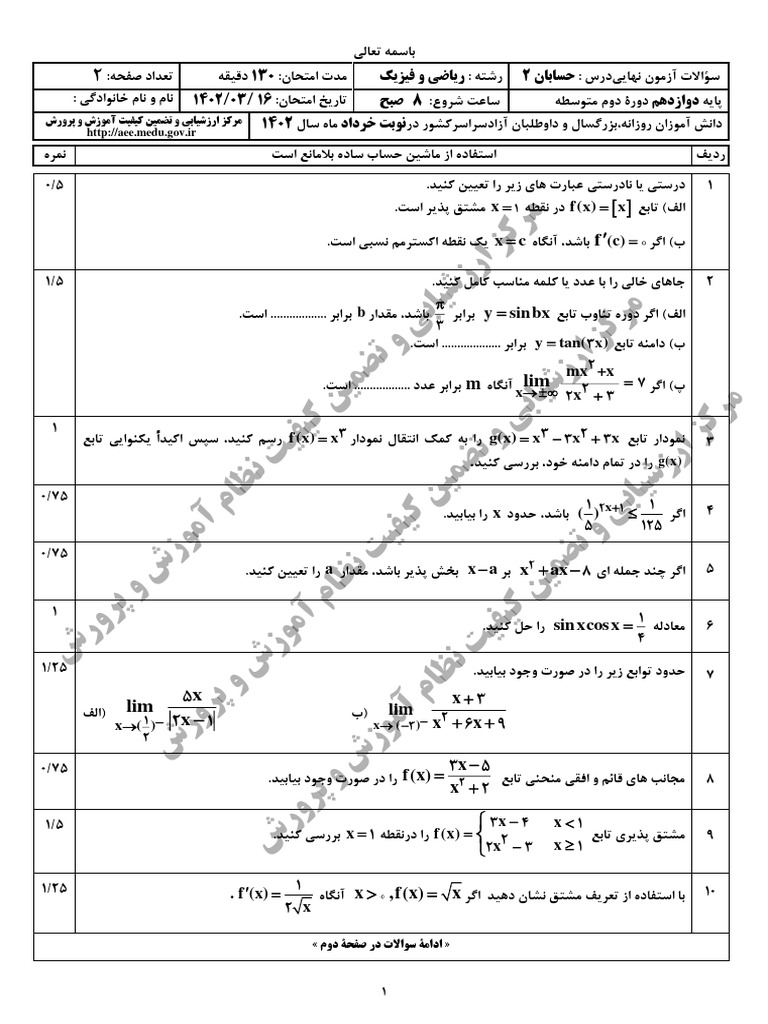 باسمه تعالی
سؤالات آزمون نهایی درس : حسابان ۲ رشته : ریاضی و فیزیک مدت امتحان: ۱۳۰ دقیقه تعداد صفحه: ۲
پایه دوازدهم دورهٔ دوم متوسطه ساعت شروع: ۸ صبح تاریخ امتحان: ۱۶ /۱۴۰۲/۰۳ نام و نام خانوادگی :
دانش آموزان روزانه،بزرگسال و داوطلبان آزادسراسرکشور درنوبت خرداد ماه سال ۱۴۰۲ مرکز ارزشیابی و تضمین کیفیت آموزش و پرورش
http://aee.medu.gov.ir
ردیف استفاده از ماشین حساب ساده بلامانع است نمره
۱ درستی یا نادرستی عبارت های زیر را تعیین کنید. ۰/۵
الف) تابع f(x) = [x] در نقطه x = ۱ مشتق پذیر است.
ب) اگر f′(c) = ۰ باشد، آنگاه x = c یک نقطه اکسترمم نسبی است.
۲ جاهای خالی را با عدد یا کلمه مناسب کامل کنید. ۱/۵
الف) اگر دوره تناوب تابع y = sin bx برابر π/۳ باشد، مقدار b برابر .................. است.
ب) دامنه تابع y = tan(۳x) برابر ................... است.
پ) اگر lim x→±∞ (mx² + x)/(۲x² + ۳) = ۷ آنگاه m برابر عدد .................. است.
۳ نمودار تابع g(x) = x³ − ۳x² + ۳x را به کمک انتقال نمودار f(x) = x³ رسم کنید، سپس اکیداً یکنوایی تابع ۱
g(x) را در تمام دامنه خود، بررسی کنید.
۴ اگر (۱/۵)^(۲x+۱) ≤ ۱/۱۲۵ باشد، حدود x را بیابید. ۰/۷۵
۵ اگر چند جمله ای x² + ax − ۸ بر x − a بخش پذیر باشد، مقدار a را تعیین کنید. ۰/۷۵
۶ معادله sin x cos x = ۱/۴ را حل کنید. ۱
۷ حدود توابع زیر را در صورت وجود بیابید. ۱/۲۵
الف) lim x→(۱/۲)⁻ ۵x/|۲x − ۱| ب) lim x→(−۳)⁻ (x + ۳)/(x² + ۶x + ۹)
۸ مجانب های قائم و افقی منحنی تابع f(x) = (۳x − ۵)/(x² + ۲) را در صورت وجود بیابید. ۰/۷۵
۹ مشتق پذیری تابع f(x) = { ۳x − ۴ x < ۱ ; ۲x² − ۳ x ≥ ۱ را درنقطه x = ۱ بررسی کنید. ۱/۵
۱۰ با استفاده از تعریف مشتق نشان دهید اگر f(x) = √x , x > ۰ آنگاه f′(x) = ۱/(۲√x) . ۱/۲۵
« ادامهٔ سوالات در صفحهٔ دوم »
۱
مرکز ارزشیابی و تضمین کیفیت نظام آموزش و پرورش
مرکز ارزشیابی و تضمین کیفیت نظام آموزش و پرورش
مرکز ارزشیابی و تضمین کیفیت نظام آموزش و پرورش